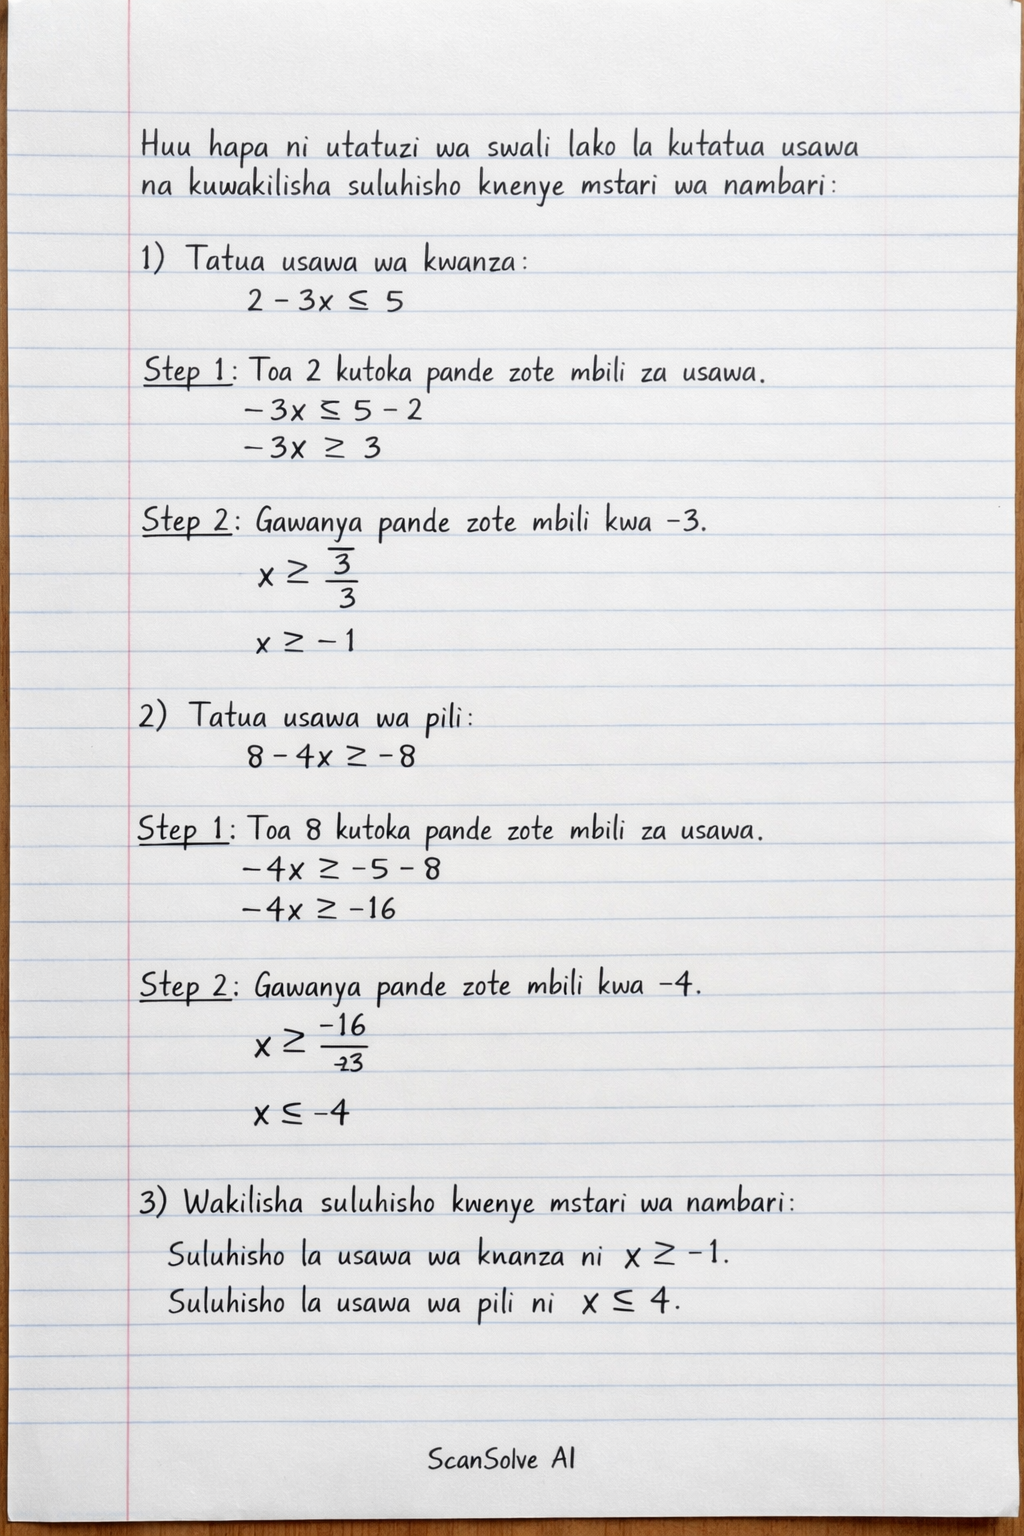 Huu hapa ni utatuzi wa swali lako la kutatua usawa
na kuwakilisha suluhisho knenye mstari wa nambari:
1) Tatua usawa wa kwanza:
2 - 3x ≤ 5
Step 1: Toa 2 kutoka pande zote mbili za usawa.
-3x ≤ 5 - 2
-3x ≥ 3
Step 2: Gawanya pande zote mbili kwa -3.
x ≥ \frac{\overline{3}}{3}
x ≥ -1
2) Tatua usawa wa pili:
8 - 4x ≥ -8
Step 1: Toa 8 kutoka pande zote mbili za usawa.
-4x ≥ -5 - 8
-4x ≥ -16
Step 2: Gawanya pande zote mbili kwa -4.
x ≥ \frac{-16}{-23}
x ≤ -4
3) Wakilisha suluhisho kwenye mstari wa nambari:
Suluhisho la usawa wa knanza ni x ≥ -1.
Suluhisho la usawa wa pili ni x ≤ 4.
ScanSolve AI